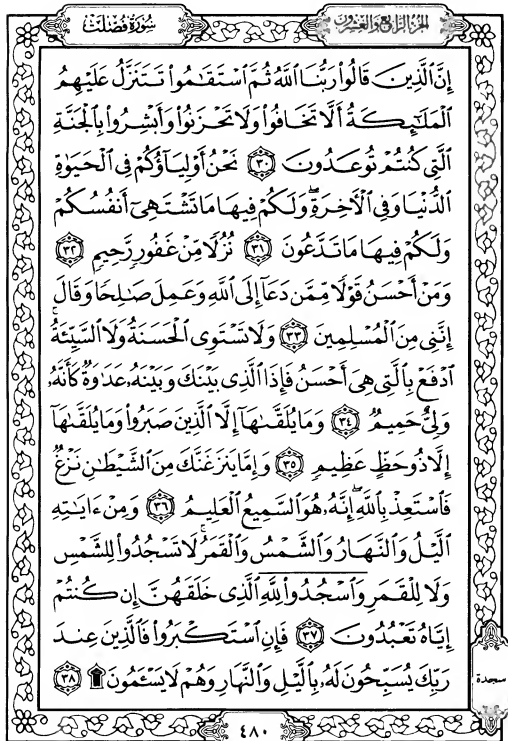 الجزء الرابع والعشرون
سورة فصلت
إِنَّ ٱلَّذِينَ قَالُوا۟ رَبُّنَا ٱللَّهُ ثُمَّ ٱسْتَقَـٰمُوا۟ تَتَنَزَّلُ عَلَيْهِمُ
ٱلْمَلَـٰٓئِكَةُ أَلَّا تَخَافُوا۟ وَلَا تَحْزَنُوا۟ وَأَبْشِرُوا۟ بِٱلْجَنَّةِ
ٱلَّتِى كُنتُمْ تُوعَدُونَ ٣٠ نَحْنُ أَوْلِيَآؤُكُمْ فِى ٱلْحَيَوٰةِ
ٱلدُّنْيَا وَفِى ٱلْـَٔاخِرَةِ ۖ وَلَكُمْ فِيهَا مَا تَشْتَهِىٓ أَنفُسُكُمْ
وَلَكُمْ فِيهَا مَا تَدَّعُونَ ٣١ نُزُلًا مِّنْ غَفُورٍ رَّحِيمٍ ٣٢
وَمَنْ أَحْسَنُ قَوْلًا مِّمَّن دَعَآ إِلَى ٱللَّهِ وَعَمِلَ صَـٰلِحًا وَقَالَ
إِنَّنِى مِنَ ٱلْمُسْلِمِينَ ٣٣ وَلَا تَسْتَوِى ٱلْحَسَنَةُ وَلَا ٱلسَّيِّئَةُ ۚ
ٱدْفَعْ بِٱلَّتِى هِىَ أَحْسَنُ فَإِذَا ٱلَّذِى بَيْنَكَ وَبَيْنَهُۥ عَدَٰوَةٌ كَأَنَّهُۥ
وَلِىٌّ حَمِيمٌ ٣٤ وَمَا يُلَقَّىٰهَآ إِلَّا ٱلَّذِينَ صَبَرُوا۟ وَمَا يُلَقَّىٰهَآ
إِلَّا ذُو حَظٍّ عَظِيمٍ ٣٥ وَإِمَّا يَنزَغَنَّكَ مِنَ ٱلشَّيْطَـٰنِ نَزْغٌ
فَٱسْتَعِذْ بِٱللَّهِ ۖ إِنَّهُۥ هُوَ ٱلسَّمِيعُ ٱلْعَلِيمُ ٣٦ وَمِنْ ءَايَـٰتِهِ
ٱلَّيْلُ وَٱلنَّهَارُ وَٱلشَّمْسُ وَٱلْقَمَرُ ۚ لَا تَسْجُدُوا۟ لِلشَّمْسِ
وَلَا لِلْقَمَرِ وَٱسْجُدُوا۟ لِلَّهِ ٱلَّذِى خَلَقَهُنَّ إِن كُنتُمْ
إِيَّاهُ تَعْبُدُونَ ٣٧ فَإِنِ ٱسْتَكْبَرُوا۟ فَٱلَّذِينَ عِندَ
رَبِّكَ يُسَبِّحُونَ لَهُۥ بِٱلَّيْلِ وَٱلنَّهَارِ وَهُمْ لَا يَسْـَٔمُونَ ۩ ٣٨
سجدة
٤٨٠